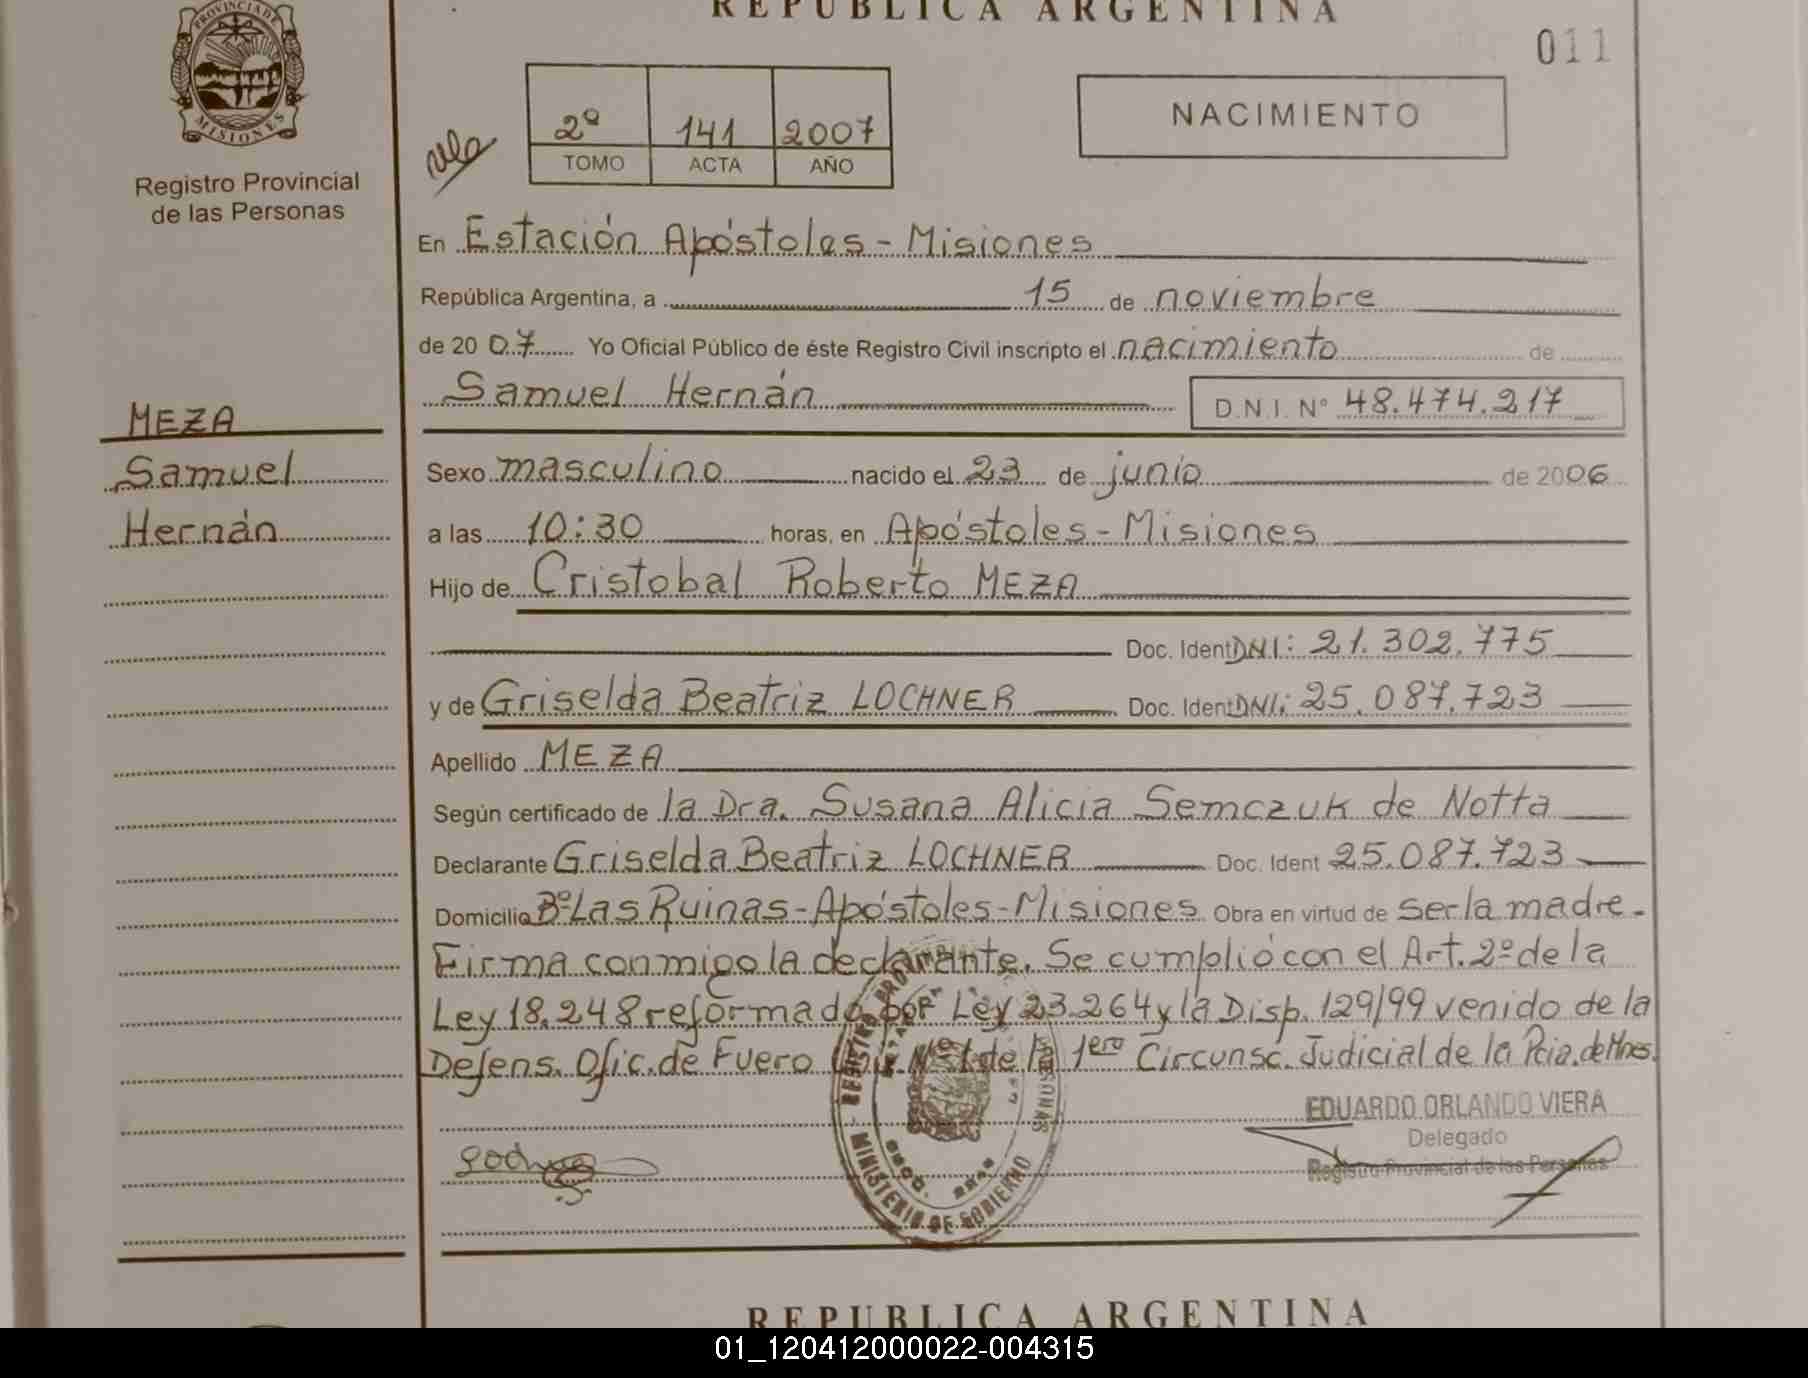 REPUBLICA ARGENTINA
011
PROVINCIA DE
MISIONES
Registro Provincial
de las Personas
2º 141 2007
TOMO ACTA AÑO
NACIMIENTO
En Estación Apóstoles - Misiones
República Argentina, a 15 de noviembre
de 20 07 Yo Oficial Público de éste Registro Civil inscripto el nacimiento de
Samuel Hernán D.N.I. Nº 48.474.217
MEZA
Samuel
Hernán
Sexo masculino nacido el 23 de junio de 2006
a las 10:30 horas, en Apóstoles - Misiones
Hijo de Cristobal Roberto MEZA
Doc. Ident DNI: 21.302.775
y de Griselda Beatriz LOCHNER Doc. Ident DNI: 25.087.723
Apellido MEZA
Según certificado de la Dra. Susana Alicia Semczuk de Notta
Declarante Griselda Beatriz LOCHNER Doc. Ident 25.087.723
Domicilio Bº Las Ruinas - Apóstoles - Misiones Obra en virtud de ser la madre.
Firma conmigo la declarante. Se cumplió con el Art. 2º de la
Ley 18.248 reformado por Ley 23.264 y la Disp. 129/99 venido de la
Defens. Ofic. de Fuero Nº 1 de la 1ero Circunsc. Judicial de la Pcia. de Mnes.
EDUARDO ORLANDO VIERA
Delegado
Registro Provincial de las Personas
MINISTERIO DE GOBIERNO
REPUBLICA ARGENTINA
01_120412000022-004315